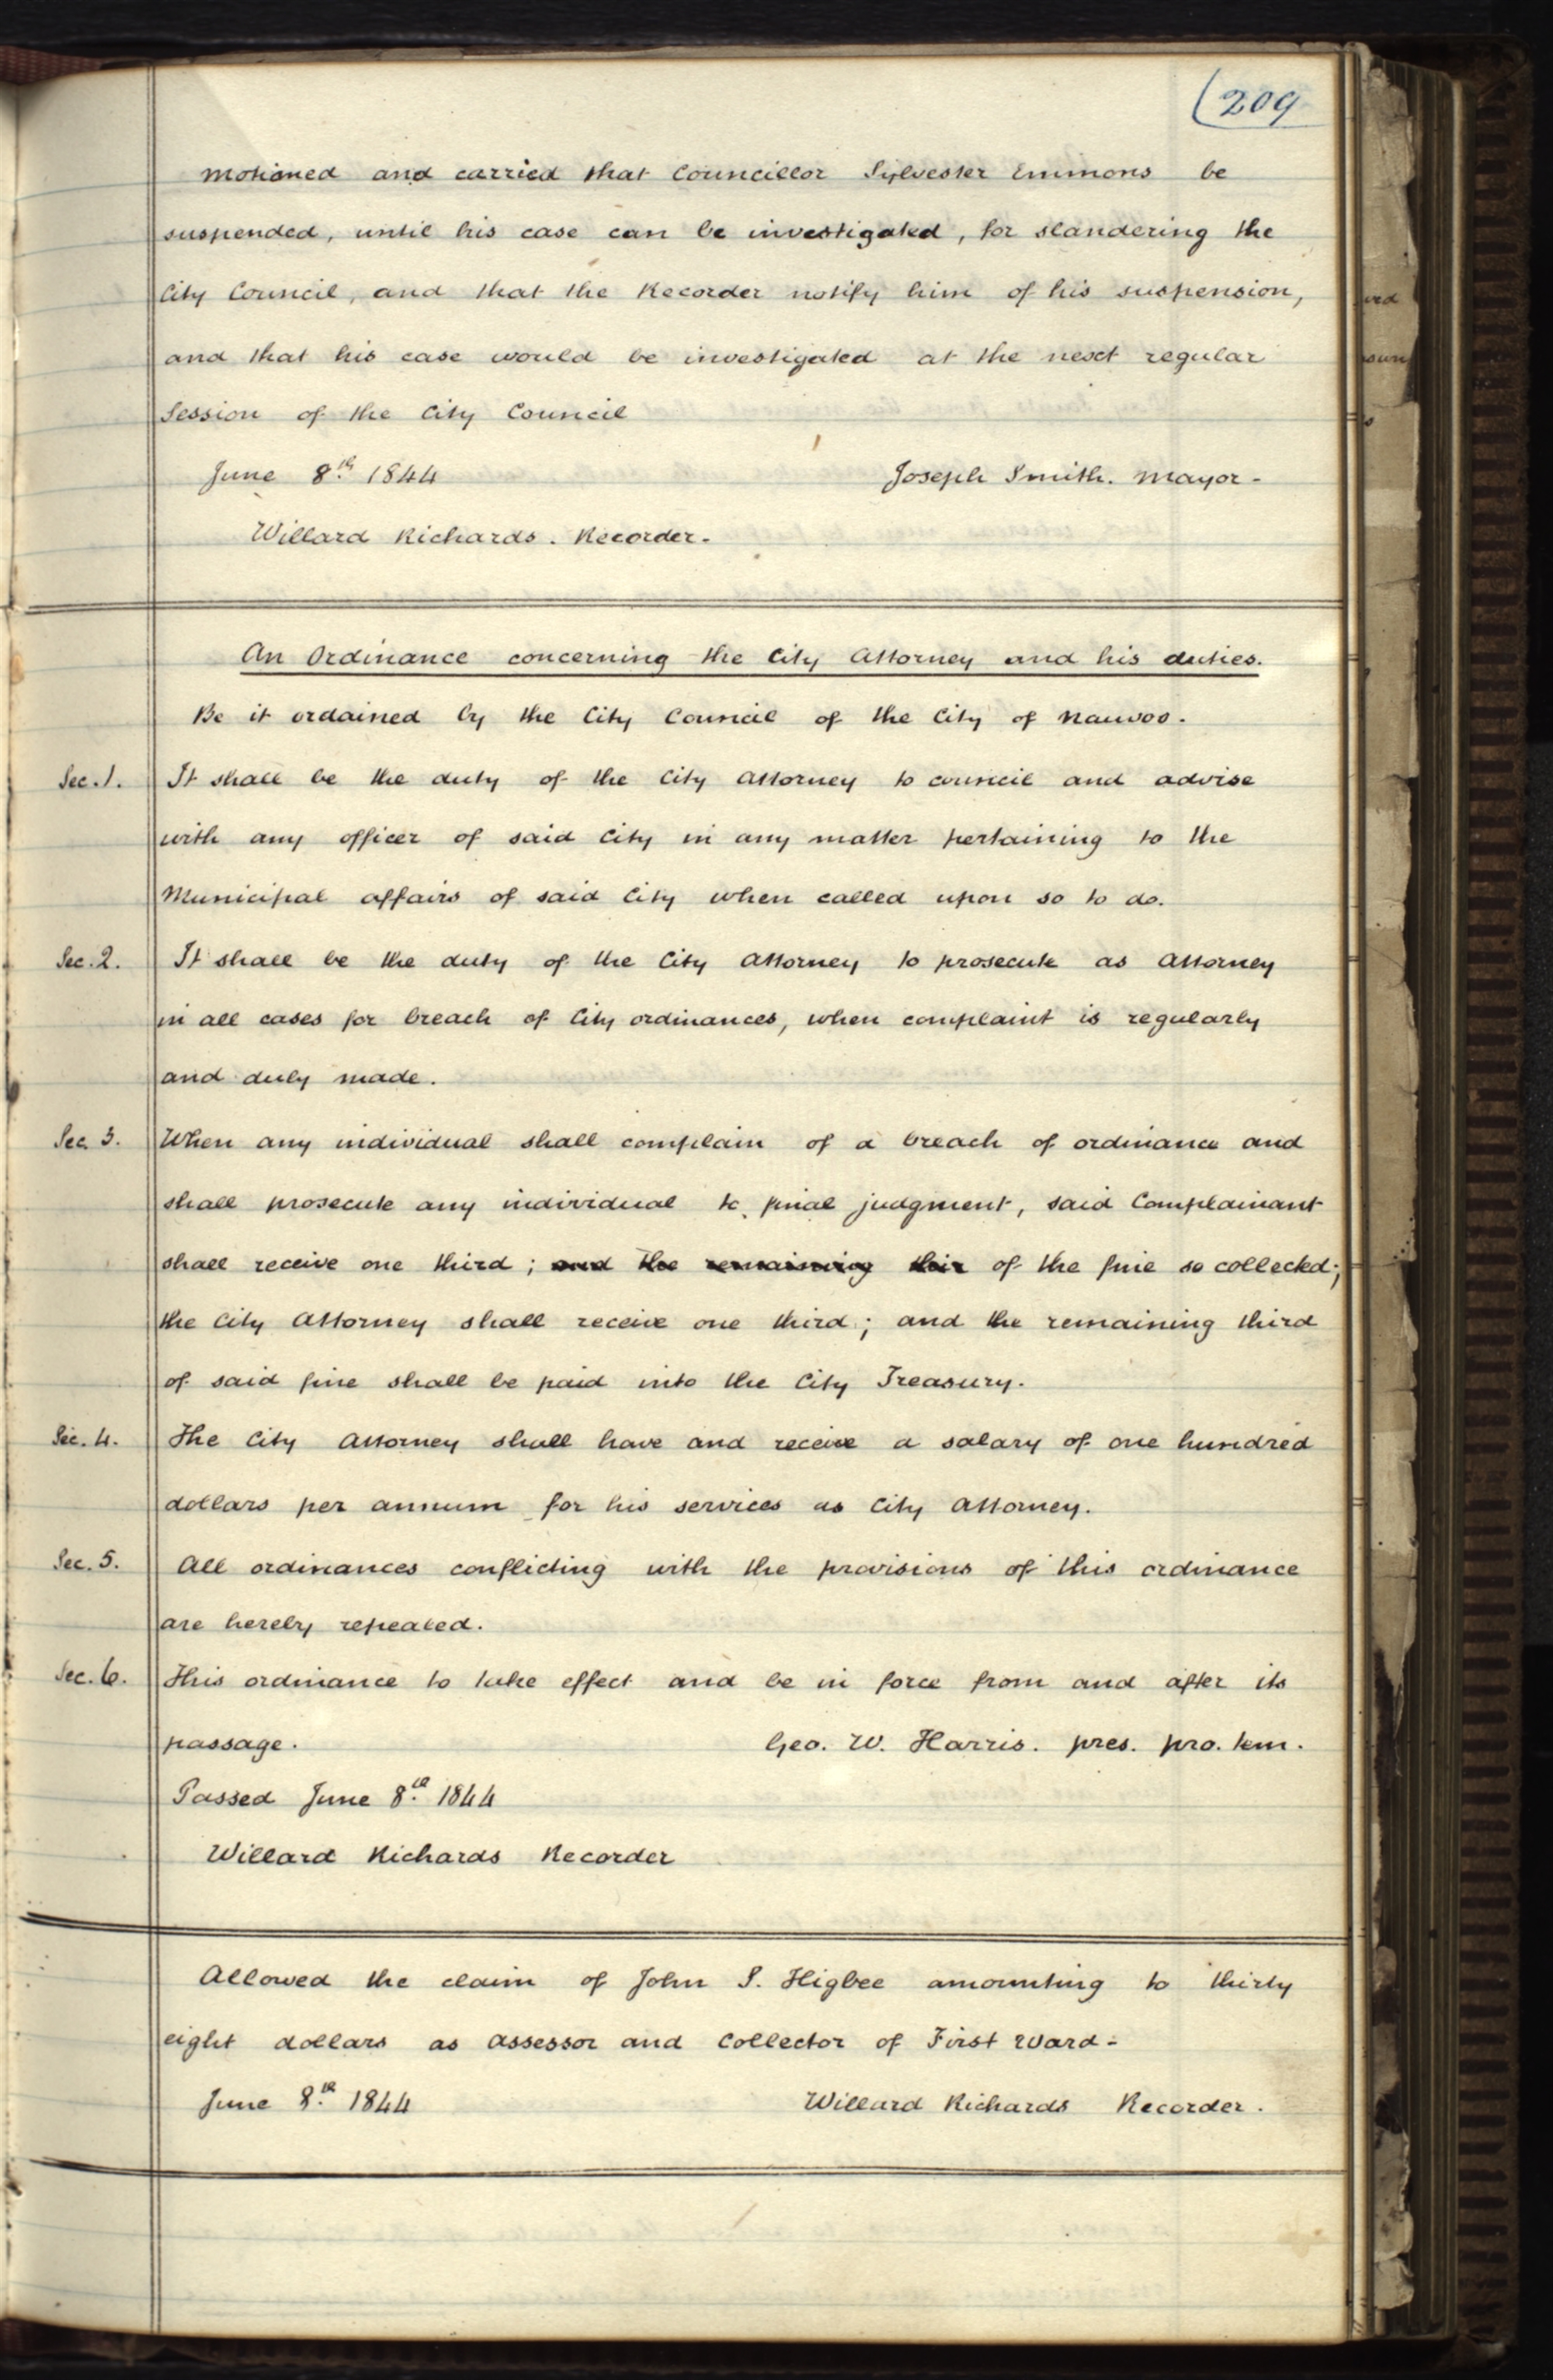 (209
Motioned and carried that Councillor Sylvester Emmons be
suspended, until his case can be investigated, for slandering the
City Council, and that the Recorder notify him of his suspension,
and that his case would be investigated at the next regular
Session of the City Council
June 8th 1844 Joseph Smith. Mayor-
Willard Richards. Recorder-
An Ordinance concerning the City Attorney and his duties.
Be it ordained by the City Council of the City of Nauvoo.
Sec. 1. It shall be the duty of the City Attorney to council and advise
with any officer of said City in any matter pertaining to the
Municipal affairs of said City when called upon so to do.
Sec. 2. It shall be the duty of the City Attorney to prosecute as Attorney
in all cases for breach of City ordinances, when complaint is regularly
and duly made.
Sec. 3. When any individual shall complain of a breach of ordinance and
shall prosecute any individual to final judgment, said Complainant
shall receive one third; and the remaining thir of the fine so collected;
the City Attorney shall receive one third; and the remaining third
of said fine shall be paid into the City Treasury.
Sec. 4. The City Attorney shall have and receive a salary of one hundred
dollars per annum for his services as City Attorney.
Sec. 5. All ordinances conflicting with the provisions of this ordinance
are hereby repealed.
Sec. 6. This ordinance to take effect and be in force from and after its
passage. Geo. W. Harris. pres. pro. tem.
Passed June 8th 1844
Willard Richards Recorder
Allowed the claim of John S. Higbee amounting to thirty
eight dollars as Assessor and Collector of First Ward-
June 8th 1844 Willard Richards Recorder.